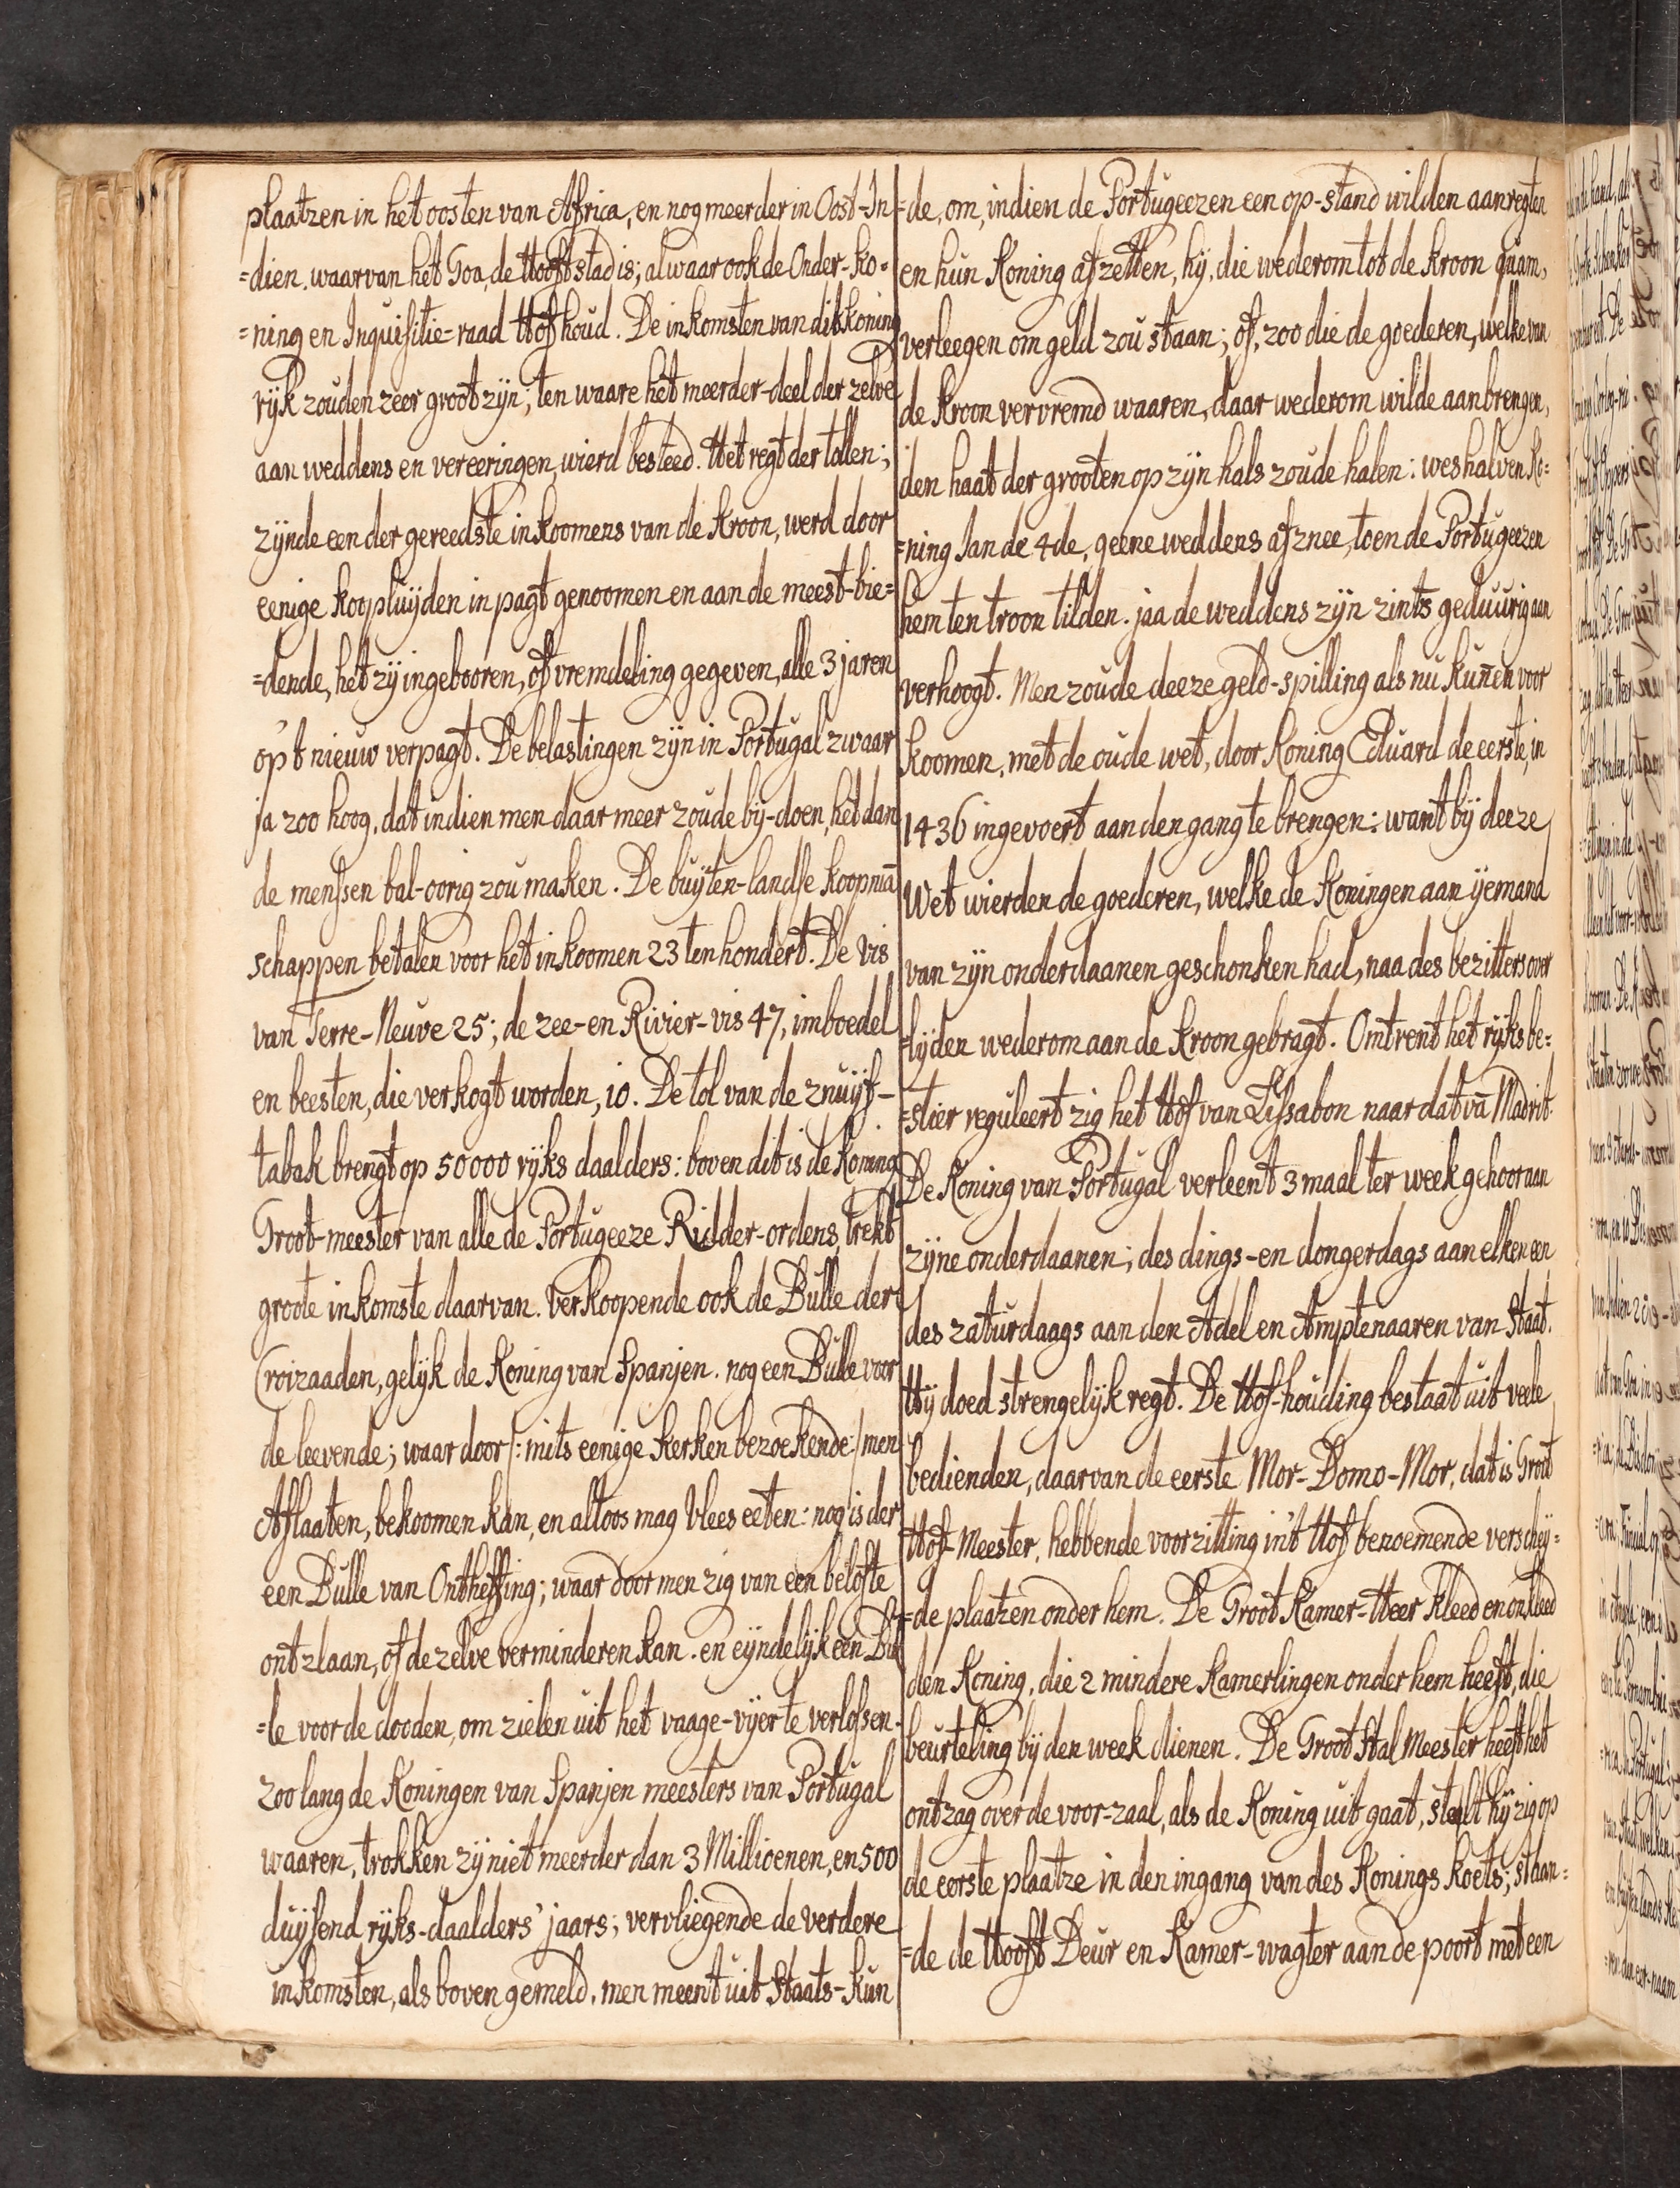 plaatzen in het oosten van Africa, en nog meerder in Oost-In
=dien. waarvan het Goa, de Hooft stad is; alwaar ook de Onder-ko=
=ning en Inquisitie-raad Hof houd. De inkomsten van dit koning
rijk zouden zeer groot zijn; ten waare het meerder-deel der zelve
aan weddens en vereeringen, wierd besteed. Het regt der tollen;
zijnde een der gereedste inkoomens van de Kroon, werd door
eenige koopluijden in pagt genoomen en aan de meest-bie=
=dende, het zij ingebooren, of vremdeling gegeven, alle 3 jaren
op't nieuw verpagt. De belastingen zijn in Portugal zwaar
ja zoo hoog, dat indien men daar meer zoude bij-doen, het dan
de menssen bal-oorig zou maken. De buijten-landse koopmā
schappen betalen voor het inkoomen 23 ten hondert. De vis
van Terre-Neuve 25; de zee- en Rivier-vis 47, imboedel
en beesten, die verkogt worden, 10. De tol van de znuijf-
tabak brengt op 50000 rijks daalders: boven dit is de Koning
Groot-meester van alle de Portugeeze Ridder-ordens, trekt
groote inkomste daarvan. verkoopende ook de Bulle der
Croizaaden, gelijk de Koning van Spanjen. nog een Bulle voor
de leevende; waar door /: mits eenige Kerken bezoekende :/ men
Aflaaten, bekoomen kan, en altoos mag vlees eeten: nog is der
een Bulle van Ontheffing; waar door men zig van een belofte
ontzlaan, of dezelve verminderen kan. en eijndelijk een Bul
=le voor de dooden, om zielen uit het vaage-vijer te verlossen.
zoo lang de Koningen van Spanjen meesters van Portugal
waaren, trokken zij niet meerder dan 3 Millioenen, en 500
duijsend rijks-daalders 'jaars; vervliegende de verdere
inkomsten, als boven gemeld. men meent uit Staats-kun
=de, om, indien de Portugeezen een op-stand wilden aanregten
en hun Koning afzetten, hij, die wederom tot de kroon quam,
verleegen om geld zou staan; of, zoo die de goederen, welke van
de Kroon vervremd waaren, daar wederom wilde aanbrengen,
den haat der grooten op zijn hals zoude halen: weshalven Ko=
=ning Jan de 4de, geene weddens afznee, toen de Portugeezen
hem ten troon tilden. jaa de weddens zijn zints geduurig aan
verhoogt. Men zoude deeze geld-spilling als nu kuñen voor
koomen, met de oude wet, door Koning Eduard de eerste, in
1436 ingevoert aan den gang te brengen: want bij deeze
Wet wierden de goederen, welke de Koningen aan ijemand
van zijn onderdaanen geschonken had, naa des bezitters over
=lijden wederom aan de Kroon gebragt. Omtrent het rijks be=
=stier reguleert zig het Hof van Lissabon naar dat vā Madrit.
De Koning van Portugal verleent 3 maal ter week gehoor aan
zijne onderdaanen; des dings- en dongerdags aan elken een
des zaturdaags aan den Adel en Amptenaaren van Staat.
Hij doed strengelijk regt. De Hof-houding bestaat uit veele
bedienden, daarvan de eerste Mor-Domo-Mor, dat is Groot
Hof-Meester, hebbende voorzitting in't Hof benoemende verscheij=
=de plaatzen onder hem. De Groot Kamer-Heer kleed en onkleed
den Koning, die 2 mindere Kamerlingen onder hem heeft, die
beurteling bij den week dienen. De Groot Stal Meester heeft het
ontzag over de voor-zaal, als de Koning uit gaat, stelt hij zig op
de eerste plaatze in den ingang van des Konings koets; staan=
=de de Hooft Deur en Kamer-wagter aan de poort met een